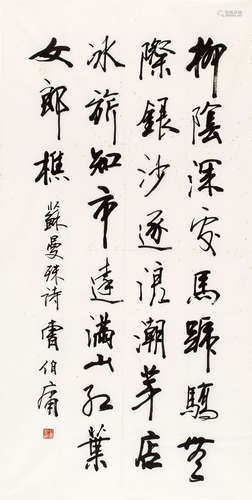 柳陰深處馬蹄驕無
際銀沙逐退潮茅店
冰旂知市遠滿山紅葉
女郎樵
蘇曼殊詩 曹伯庸